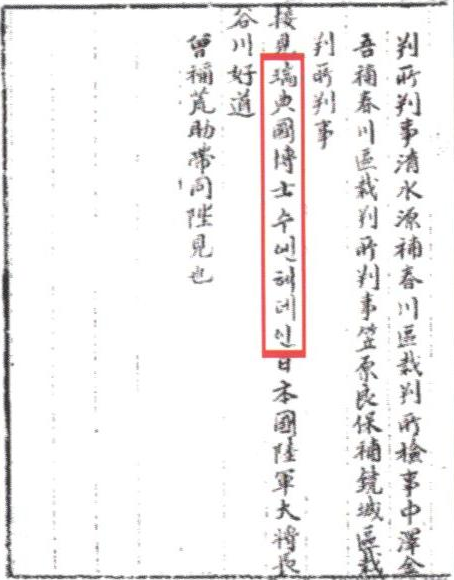 判所判事清水源補春川區裁判所檢事中澤金
吾補春川區裁判所判事笠原良保補鏡城區裁
判所判事
接見瑞典國博士수벤헤데인日本國陸軍大將長
谷川好道
曾禰荒助帶同陛見也